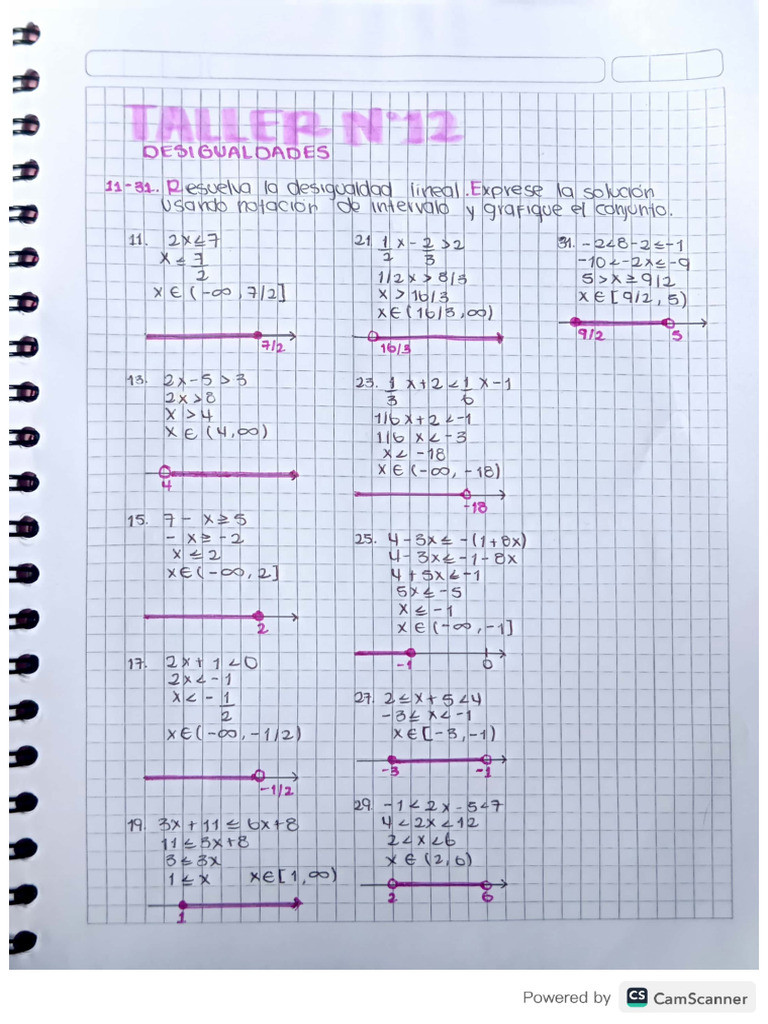 TALLER N°12
DESIGUALDADES
11-31. Resuelva la desigualdad lineal. Exprese la solución
usando notación de intervalo y grafique el conjunto.
11. 2x≤7
x ≤ 7/2
x ∈ (-∞, 7/2]
7/2
13. 2x-5 > 3
2x > 8
x > 4
x ∈ (4,∞)
4
15. 7 - x ≥ 5
- x ≥ -2
x ≤ 2
x∈(-∞, 2]
2
17. 2x + 1 < 0
2x < -1
x < - 1/2
x∈(-∞, -1/2)
-1/2
19. 3x + 11 ≤ 6x+8
11 ≤ 3x+8
3 ≤ 3x
1 ≤ x x∈[1,∞)
1
21 1/2 x - 2/3 > 2
1/2x > 8/3
x > 16/3
x∈(16/3,∞)
16/3
23. 1/3 x+2 < 1/6 x-1
1/6x+2 < -1
1/6 x < -3
x < -18
x ∈ (-∞, -18)
-18
25. 4-3x ≤ -(1+8x)
4-3x ≤ -1-8x
4+5x ≤ -1
5x ≤ -5
x ≤ -1
x ∈(-∞,-1]
-1 0
27. 2 ≤ x+5 < 4
-3 ≤ x < -1
x∈[-3,-1)
-3 -1
29. -1 < 2x-5 < 7
4 < 2x < 12
2 < x < 6
x ∈ (2,6)
2 6
31. -2<8-2≤-1
-10 < -2x ≤ -9
5 > x ≥ 9/2
x∈[9/2, 5)
9/2 5
Powered by CS CamScanner